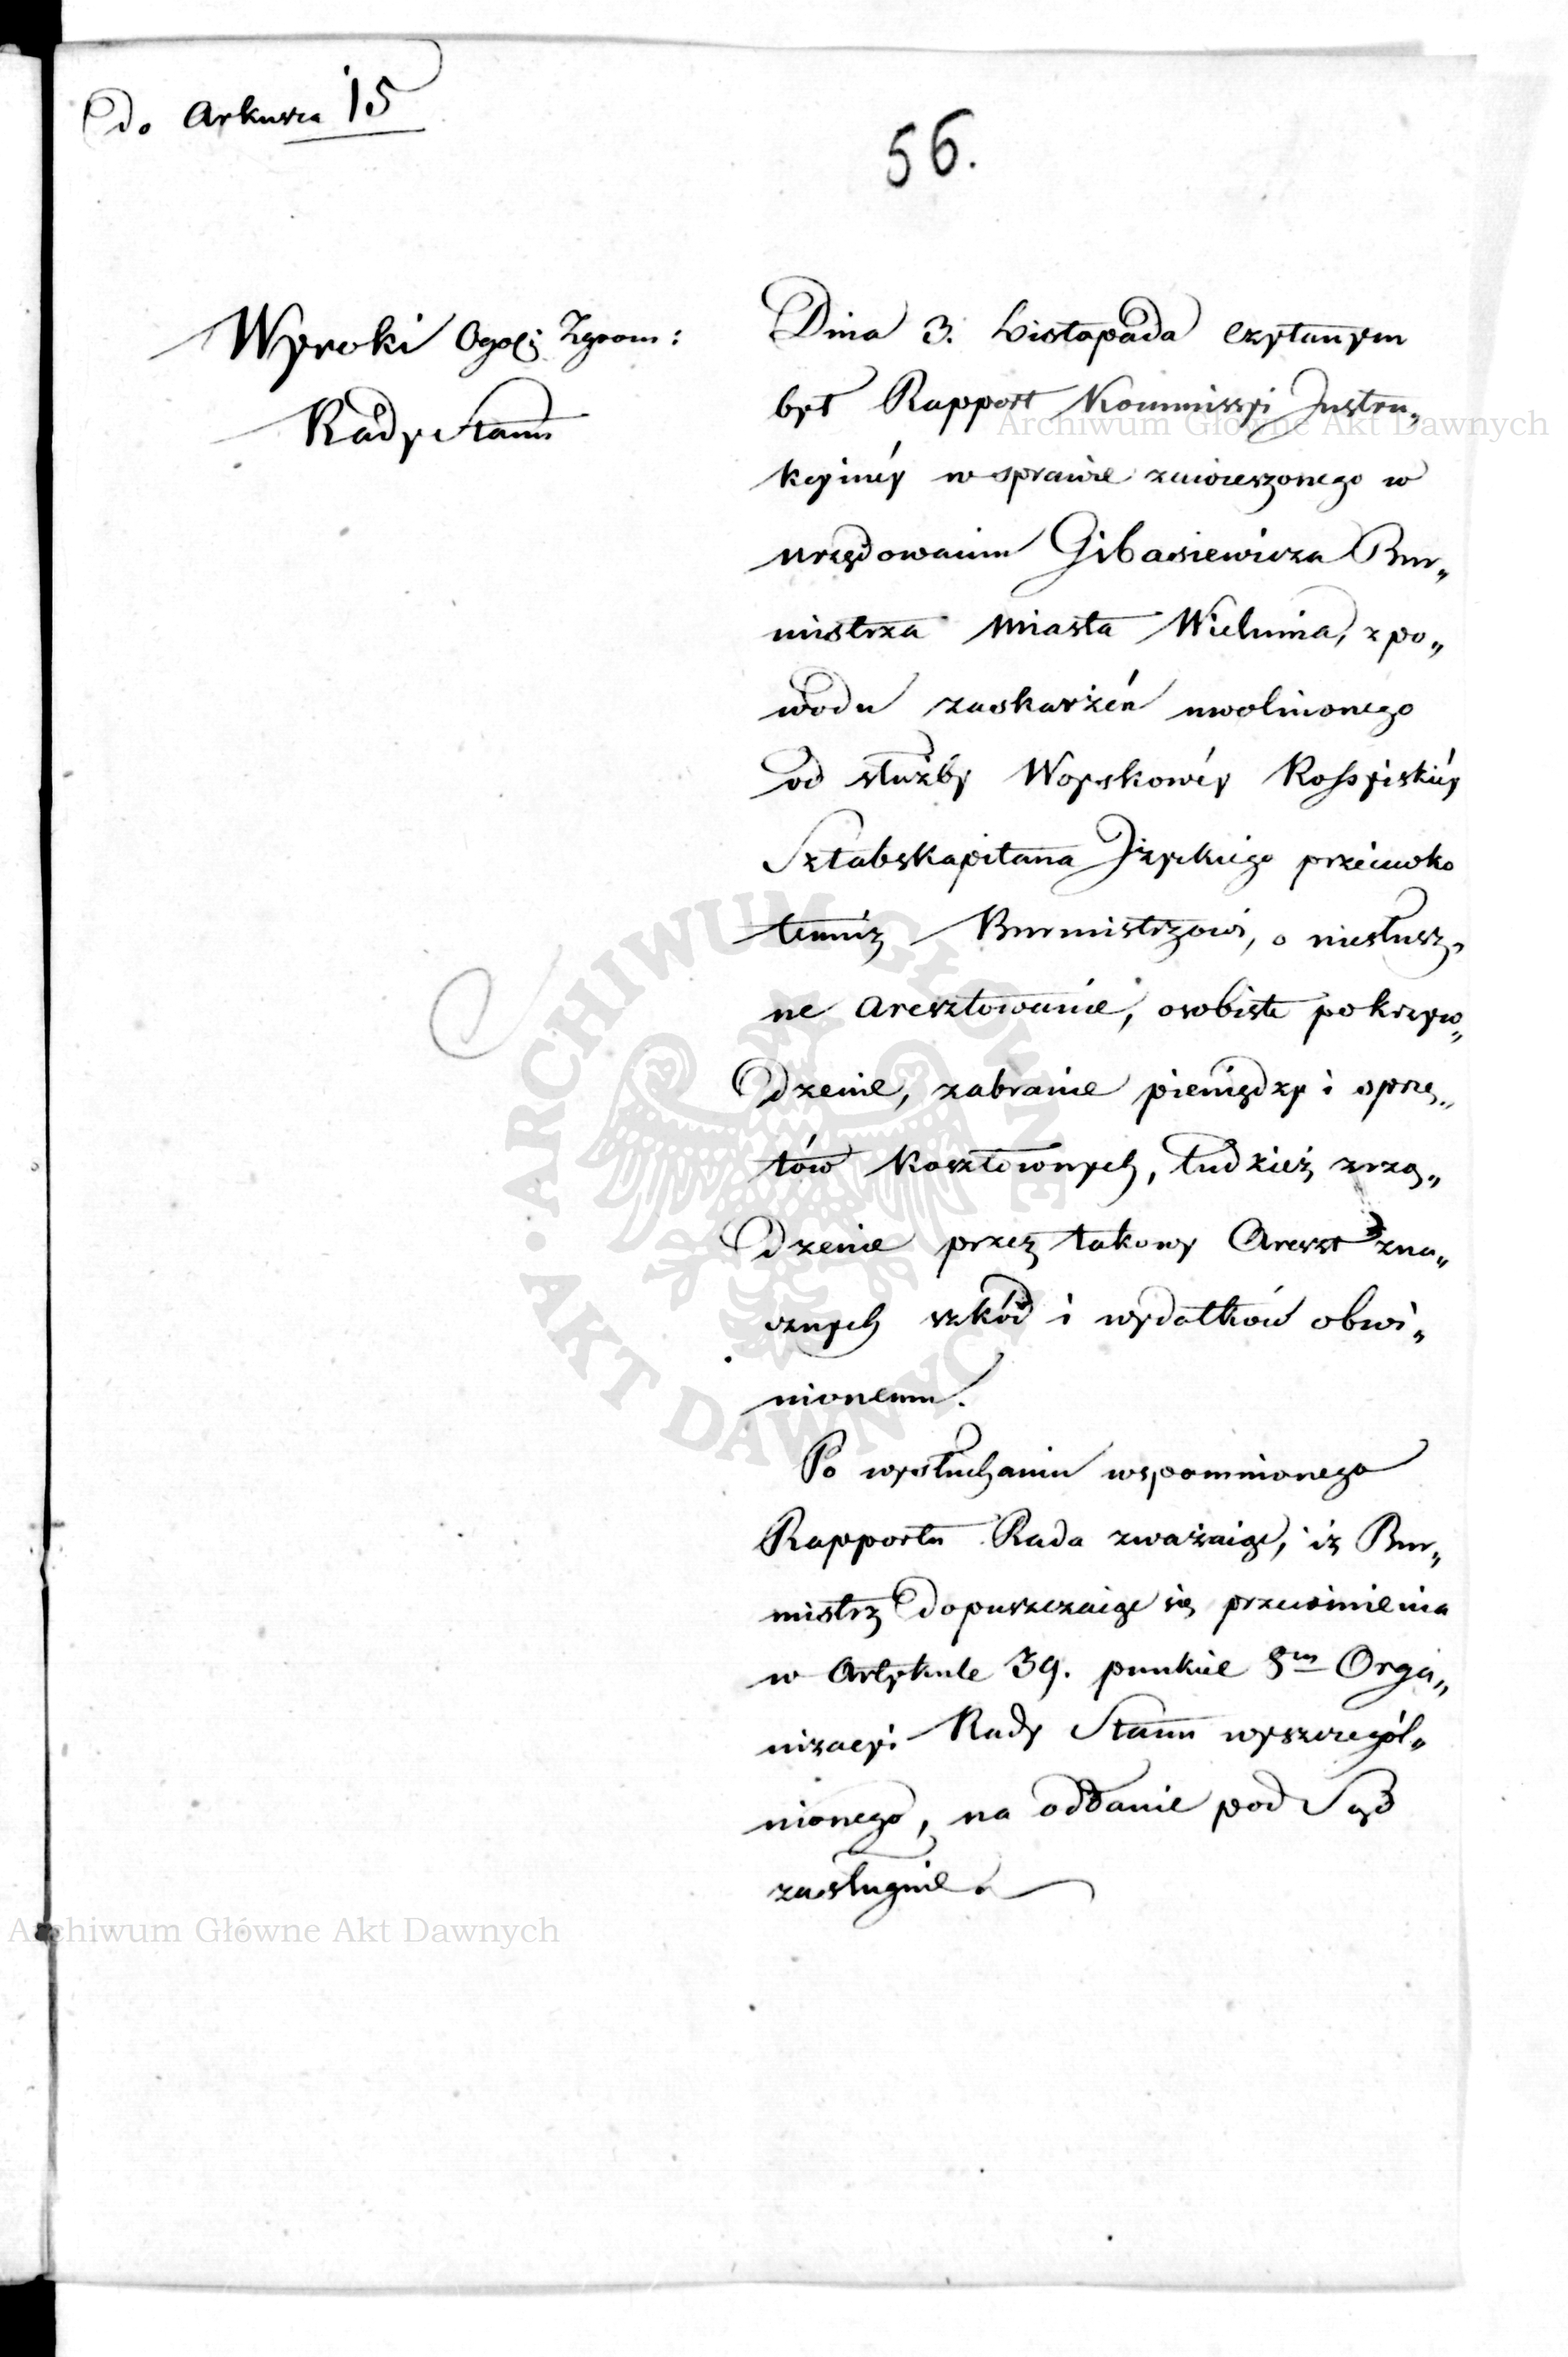 do Arkusza 15
56.
Wyroki Ogól: Zgrom:
Rady Stanu
Dnia 3. Listopada czytanym
był Rapport Kommissyi Instru„
kcyinéy w sprawie zawieszonego w
urzędowaniu Gibasiewicza Bur„
mistrza Miasta Wielunia, z po„
wodu zaskarżeń uwolnionego
od służby Woyskowéy Rossyiskiéy
Sztabskapitana Iżyckiego przeciwko
temuż Burmistrzowi, o niesłusz„
ne Aresztowanie, osobiste pokrzyw„
dzenie, zabranie pieniędzy i sprzę„
tów kosztownych, tudzież zrzą„
dzenie przez takowy Areszt zna„
cznych szkód i wydatków obwi„
nionemu.
Po wysłuchaniu wspomnionego
Rapportu Rada zważaiąc, iż Bur„
mistrz dopuszczaiąc się przewinienia
w Artykule 39. punkcie 8m Orga„
nizacyi Rady Stanu wyszczegól„
nionego, na oddanie pod Sąd
zasługuie.
Archiwum Główne Akt Dawnych
Archiwum Główne Akt Dawnych
ARCHIWUM GŁÓWNE AKT DAWNYCH